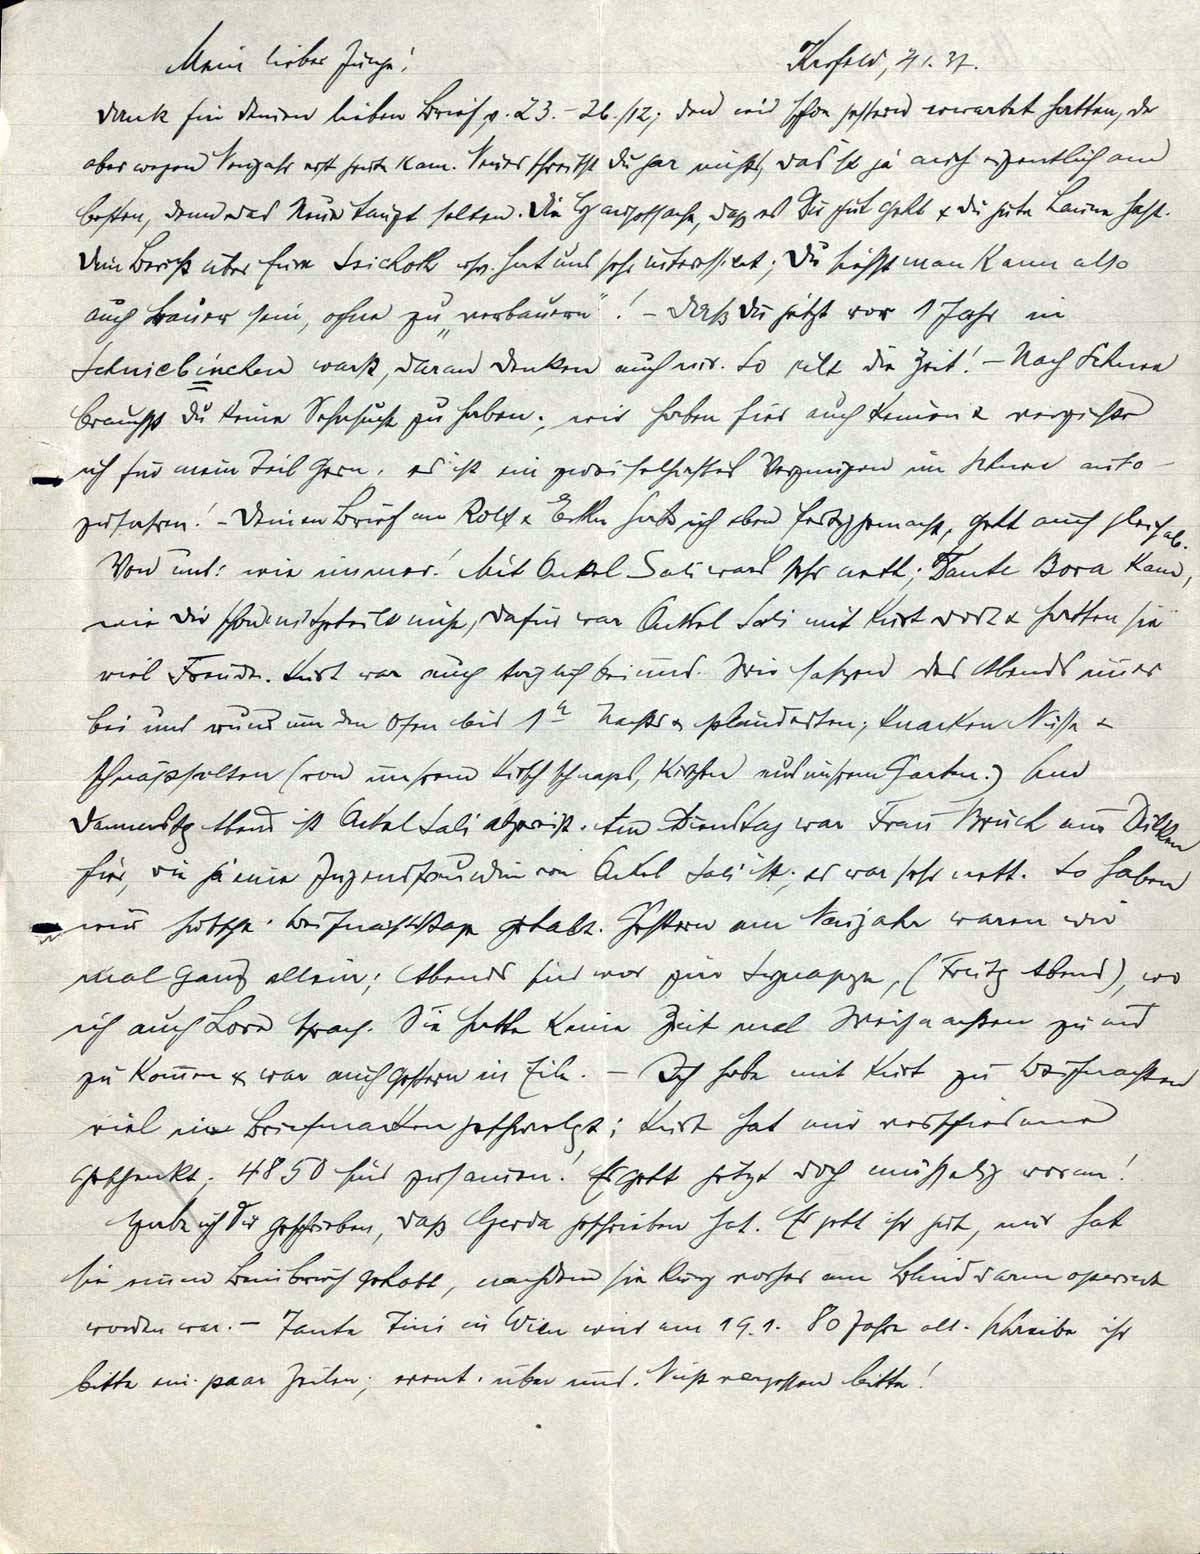 Mein lieber Junge! Krefeld, 2/1. 37.
Dank für Deinen lieben Brief v. 23. - 26./12; den wir schon gestern erwartet hatten, der
aber wegen Neujahr erst heute kam. Neues schreibst Du gar nichts, das ist ja auch eigentlich am
besten, denn das Neue taugt selten. Die Hauptsache, daß es Dir gut geht & Du gute Laune hast.
Dein Bericht über Eure hat uns sehr interessiert; Du siehst man kann also
auch Bauer sein, ohne zu „verbauern"! - Daß Du jetzt vor 1 Jahr in
Schniebinchen warst, daran denken auch wir. So eilt die Zeit! - Nach Schnee
brauchst Du keine Sehnsucht zu haben; wir haben hier auch keinen & verzichte
ich für mein Teil gern. es ist ein zweifelhaftes Vergnügen im Schnee auto-
zufahren! - Deinen Brief an Rolf & habe ich eben fertiggemacht, geht auch gleich ab.
Von uns: wie immer! Mit Onkel Sali war's sehr nett; Tante Bora kam,
wie Dir schon mitgeteilt nicht, dafür war Onkel Sali mit Kurt dort & hatten sie
viel Freude. Kurt war auch täglich bei uns. Wir saßen des Abends immer
bei uns rund um den Ofen bis 1 h Nachts & plauderten; knackten Nüsse &
(von unserem Kirschschnaps, Kirschen aus unserem Garten.) Am
Donnerstag Abend ist Onkel Sali abgereist. Am Dienstag war Frau Bruch aus Dülken
hier, die ja eine Jugendfreundin von Onkel Sali ist; es war sehr nett. So haben
wir hübsche Weihnachtstage gehabt. Gestern am Neujahr waren wir
mal ganz allein; Abends sind wir zur Synagoge, (Freitag Abend), wo
ich auch Lore sprach. Sie hatte keine Zeit mal Weihnachten zu uns
zu kommen & war auch gestern in Eile. - Ich habe mit Kurt zu Weihnachten
viel in Briefmarken geschwelgt; Kurt hat mir verschiedene
geschenkt; 4850 sind zusammen! Es geht jetzt doch mächtig voran!
Habe ich Dir geschrieben, daß Gerda geschrieben hat. Es geht ihr gut, nur hat
sie einen Beinbruch gehabt, nachdem sie kurz vorher am Blinddarm operiert
worden war. - Tante Fini in Wien wird am 19.1. 80 Jahre alt. Schreibe ihr
bitte ein paar Zeilen; event. über uns. Nicht vergessen bitte!